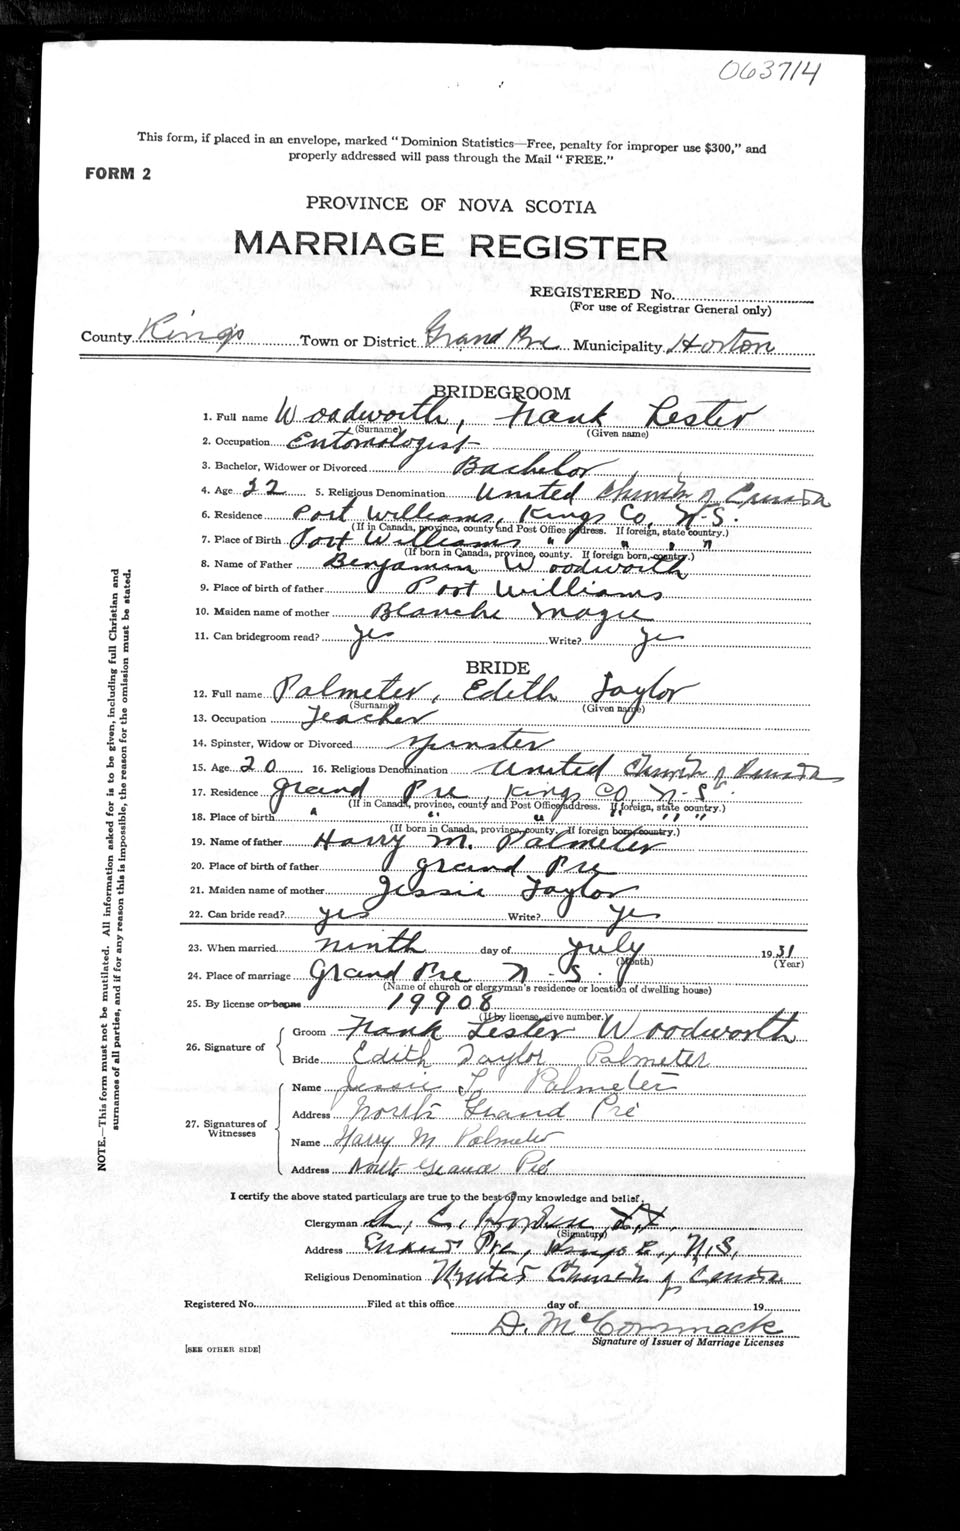 063714
This form, if placed in an envelope, marked "Dominion Statistics—Free, penalty for improper use $300," and
properly addressed will pass through the Mail "FREE."
FORM 2
PROVINCE OF NOVA SCOTIA
MARRIAGE REGISTER
REGISTERED No.
(For use of Registrar General only)
County King's Town or District Grand Pre Municipality Horton
BRIDEGROOM
1. Full name Woodworth, Frank Lester
(Surname) (Given name)
2. Occupation Entomologist
3. Bachelor, Widower or Divorced Bachelor
4. Age 22 5. Religious Denomination United Church of Canada
6. Residence Port Williams, Kings Co, N.S.
(If in Canada, province, county and Post Office address. If foreign, state country.)
7. Place of Birth Port Williams " " " "
(If born in Canada, province, county. If foreign born, country.)
8. Name of Father Benjamin Woodworth
9. Place of birth of father Port Williams
10. Maiden name of mother Blanche Magee
11. Can bridegroom read? yes Write? yes
BRIDE
12. Full name Palmeter, Edith Taylor
(Surname) (Given name)
13. Occupation Teacher
14. Spinster, Widow or Divorced Spinster
15. Age 20 16. Religious Denomination United Church of Canada
17. Residence Grand Pre, Kings Co N.S.
(If in Canada, province, county and Post Office address. If foreign, state country.)
18. Place of birth " " " " "
(If born in Canada, province, county. If foreign born, country.)
19. Name of father Harry M. Palmeter
20. Place of birth of father Grand Pre
21. Maiden name of mother Jessie Taylor
22. Can bride read? yes Write? yes
23. When married ninth day of July 1931
(Month) (Year)
24. Place of marriage Grand Pre N.S.
(Name of church or clergyman's residence or location of dwelling house)
25. By license or banns 19908
(If by license, give number.)
26. Signature of Groom Frank Lester Woodworth
Bride Edith Taylor Palmeter
27. Signatures of Witnesses Name Jessie T. Palmeter
Address North Grand Pré
Name Harry M Palmeter
Address North Grand Pré
I certify the above stated particulars are true to the best of my knowledge and belief.
Clergyman A. C.
(Signature)
Address Grand Pre, Kings Co., N.S.
Religious Denomination United Church of Canada
Registered No. Filed at this office day of 19
D. McCormack
Signature of Issuer of Marriage Licenses
[SEE OTHER SIDE]
NOTE.—This form must not be mutilated. All information asked for is to be given, including full Christian and
surnames of all parties, and if for any reason this is impossible, the reason for the omission must be stated.